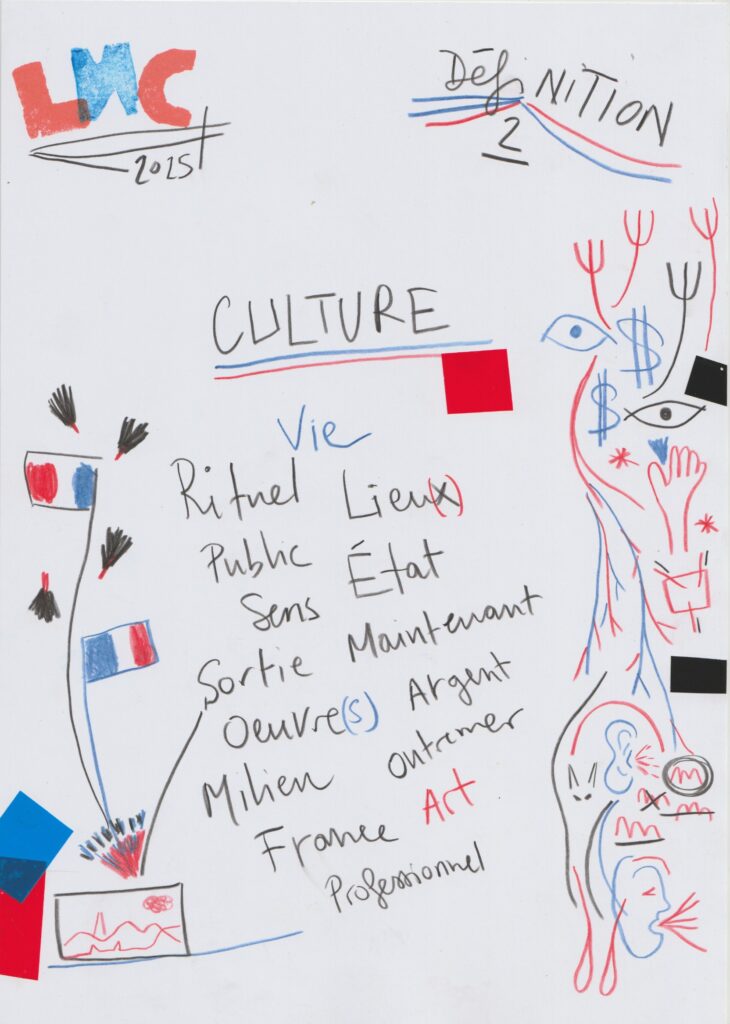 LMC
2025
DéfiNITION
2
CULTURE
Vie
Rituel Lieux(x)
Public État
Sens Maintenant
Sortie Argent
Oeuvre(s) outremer
Milieu Art
France
Professionnel